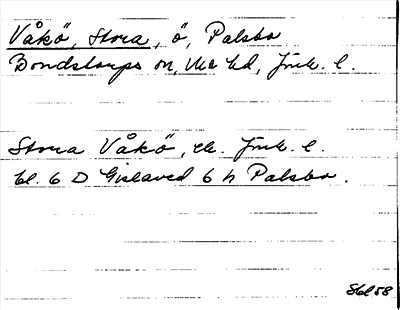 Våkö, Stora, ö, Palsbo
Bondstorps sn, Mo hd, Jönk. l.
Stora Våkö, ek. Jönk. l.
bl. 6 D Gislaved 6 h Palsbo.
58